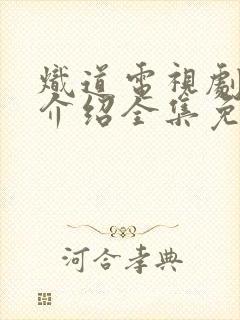 熾道電視劇
介绍全集免
河合孝典